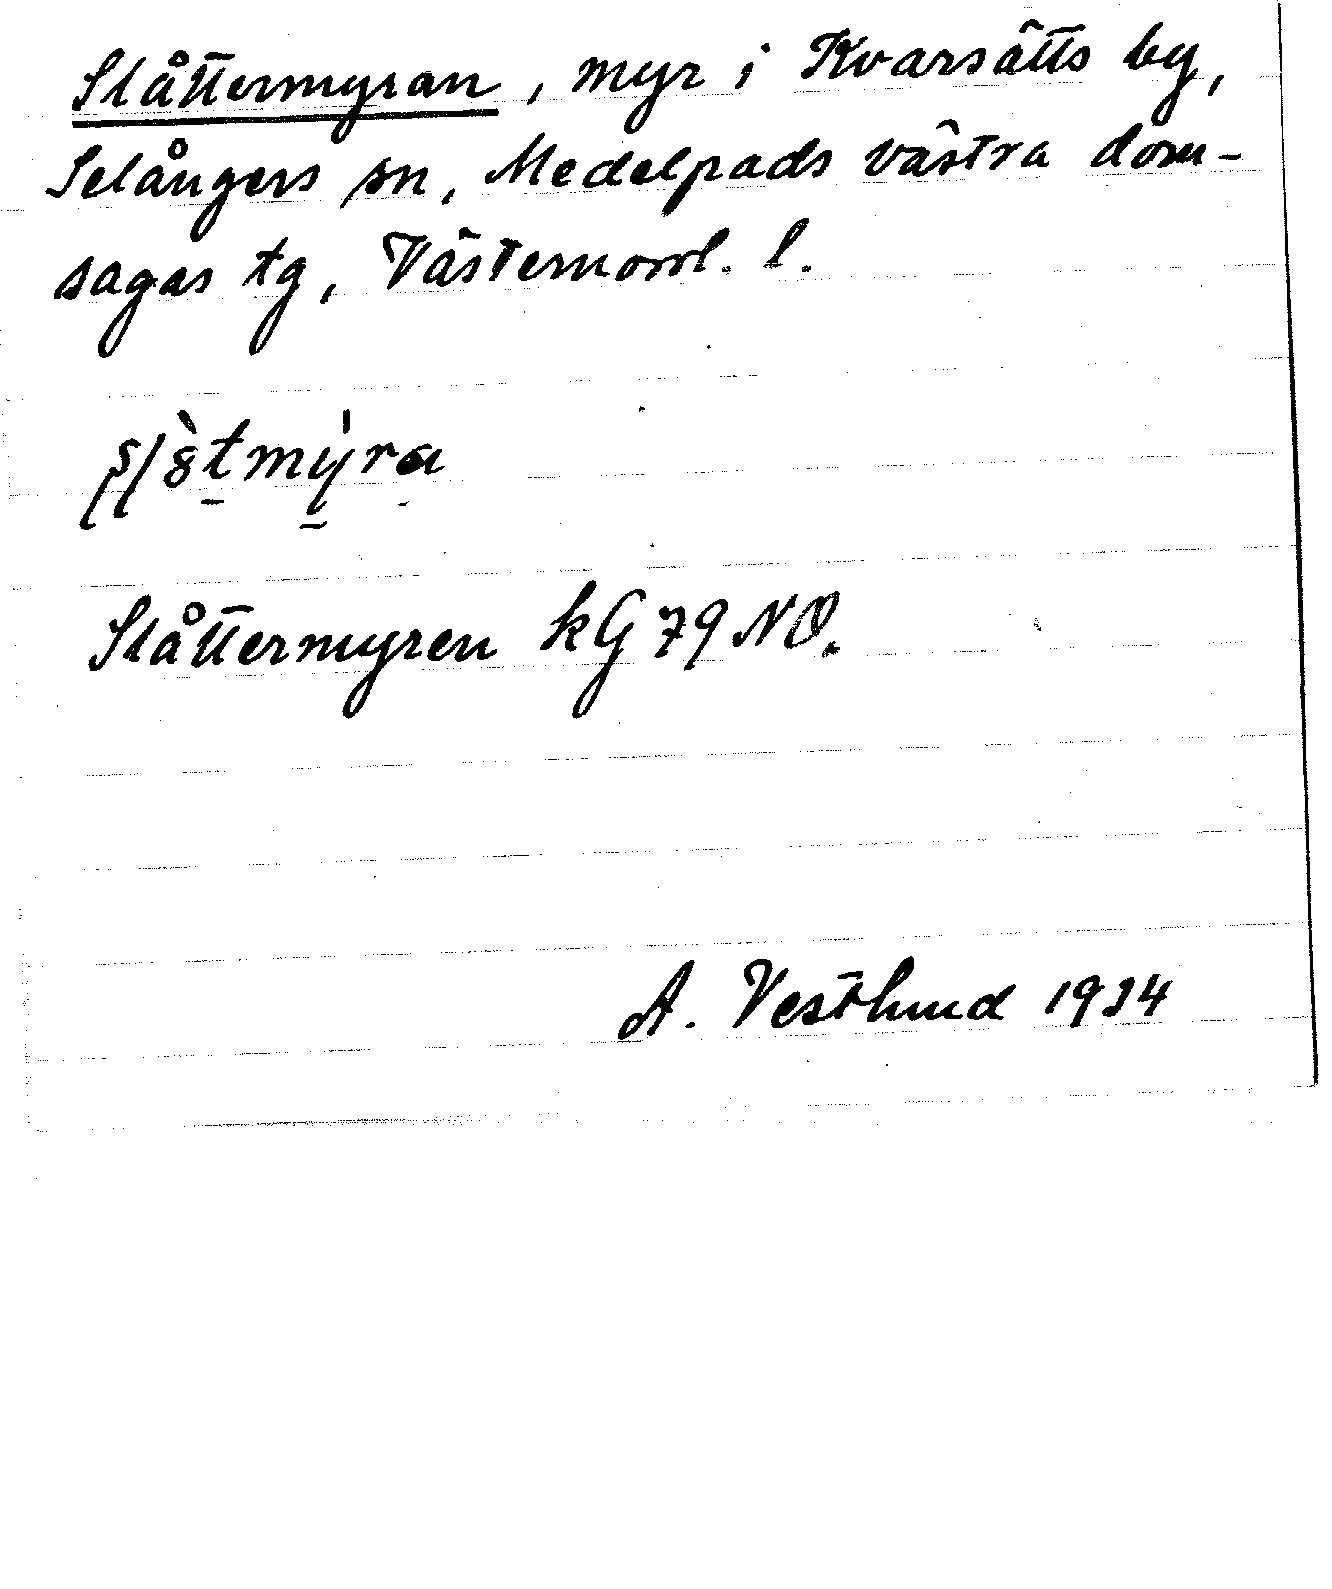 Slåttermyran, myr i Kvarsätts by,
Selångers sn, Medelpads västra dom-
sagas tg, Västernorrl. l.
Slåttermyren kG 79 NO.
A. Vestlund 1934